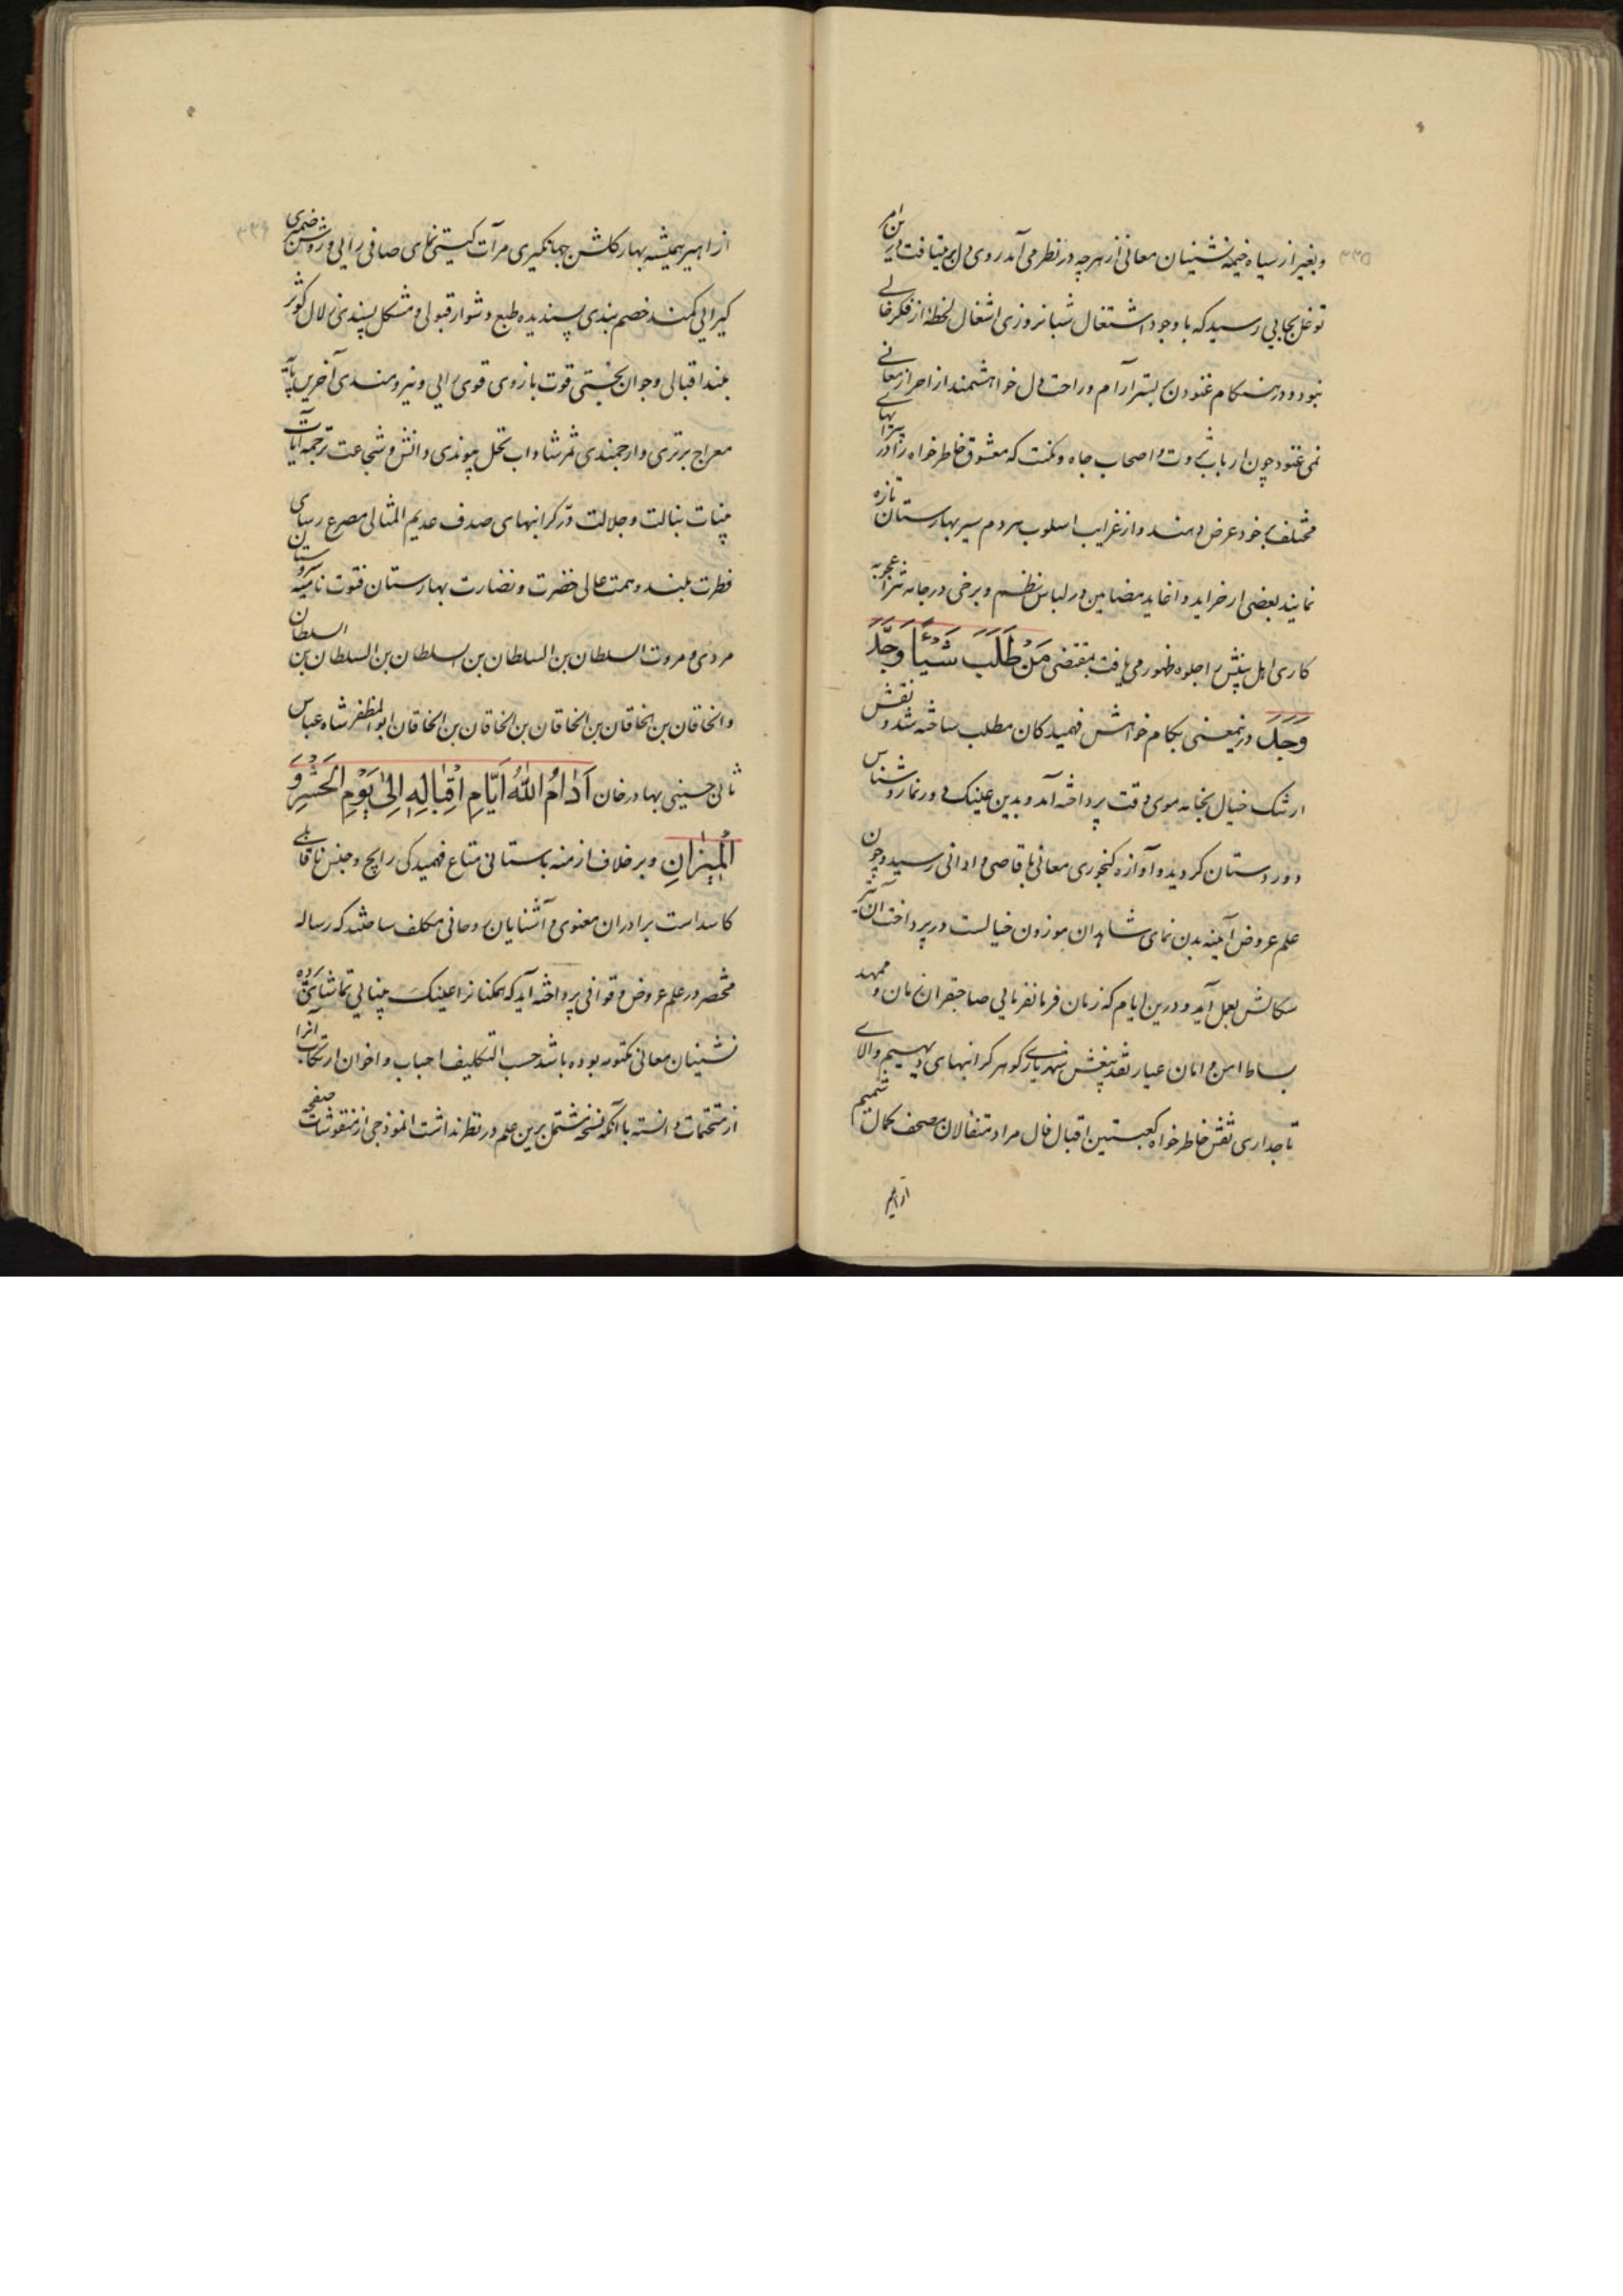 ۳۳۵
و بغیر از سیاه خیمه نشینان معانی از هرچه در نظر می آمد روی دل بر میتافت
توغل بجایی رسید که با وجود اشتغال شبانروزی اشغال لحظهٔ از فکر خالی
نبود و در هنگام غنودن بر بستر آرام و راحت دل خواهشمند از احراز معانی
نمی غنود چون ارباب ثروت و اصحاب جاه و مکنت که معشوق خاطر خواه را در
مختلف بر خود عرض دهند و از غرایب اسلوب هر دم سیر بهارستان تازه
نمایند بعضی از خراید و اغاید مضامین در لباس نظم و برخی در جامه نثر اعجوبه
کاری اهل بینش را جلوه ظهور می یافت بمقتضی مَنْ طَلَبَ شَیْئًا وَجَدَّ
وَجَدَ درینمعنی بکام خواهش فهمید کان مطلب ساخته شد و نقش
ارتنک خیال بخامه موی دقت پرداخته آمد و بدین عینک دورنما روشناس
دوردستان کردید و آوازه کنجوری معانی باقاصی و ادانی رسید و چون
علم عروض آیینه بدن نمای شاهدان موزون خیالست در پرداخت آن نیز
سکالش بعمل آید و درین ایام که زمان فرمانفرمایی صاحبقران زمان و ممهد
بساط امن و امان عیار نقد بینش شهریاری کوهر کرانبهای دیهیم والای
تاجداری نقش خاطر خواه کعبتین اقبال فال مراد متفالان مصحف کمال شمیم
ازاهیر
۳۳۶
ازاهیر همیشه بهار کلشن جهانکیری مرآت کیتی نمای صافی رایی و روشن ضمیری
کیرایی کمند خصم بندی پسندیده طبع دشوار قبولی و مشکل پسندی زلال کوثر
بلند اقبالی و جوان بختی قوت بازوی قوی رایی و نیرومندی آخرین پایه
معراج برتری و ارجمندی ثمر شاداب نخل پیوندی دانش و شجاعت ترجمه آیات
بینات بنالت و جلالت درّ کرانبهای صدف عدیم المثالی مصرع رسای
فطرت بلند و همت عالی خضرت و نضارت بهارستان فتوت نامیه سروستان
مردی و مروت السلطان بن السلطان بن السلطان بن السلطان بن السلطان
والخاقان بن الخاقان بن الخاقان بن الخاقان بن الخاقان ابو المظفر شاه عباس
ثانی حسینی بهادر خان اَدَامُ اللّٰهُ اَیَّامِ اِقْبَالِهِ اِلیٰ یَوْمِ الحَشْرِ وَ
الْمِیْزَانِ و بر خلاف ازمنه باستانی متاع فهمیدکی رایج و جنس ناقابلی
کاسد است برادران معنوی و آشنایان روحانی مکلف ساختند که رساله
مختصر در علم عروض و قوافی پرداخته آید که همکنانرا عینک بینایی تماشای پرده
نشینان معانی مکتومه بوده باشد حسب التکلیف احباب و اخوان ارتکاب آنرا
از متحتمات دانسته با آنکه نسخه مشتمل برین علم در نظر نداشت انموذجی از منقوشات صفحه